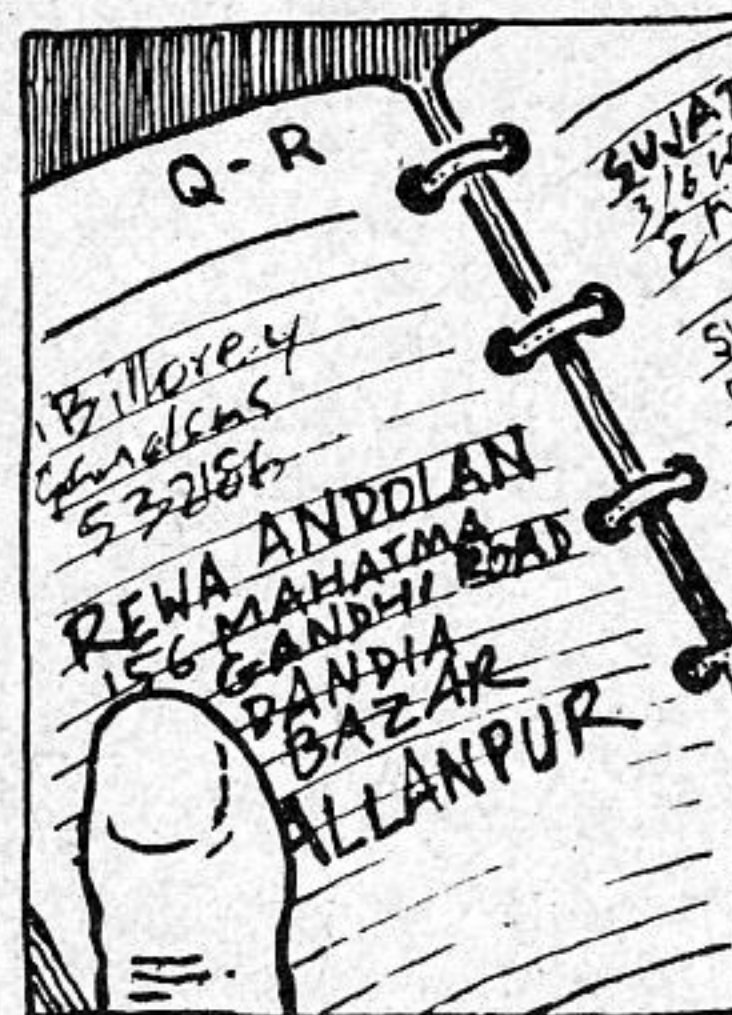 Q-R
Billorey
Gardens
REWA ANDOLAN
156 MAHATMA
GANDHI ROAD
DANDIA
BAZAR
ALLANPUR
3/6